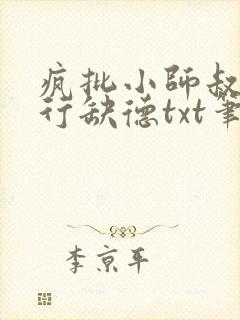 疯批小师叔
行缺德txt笔
李京平